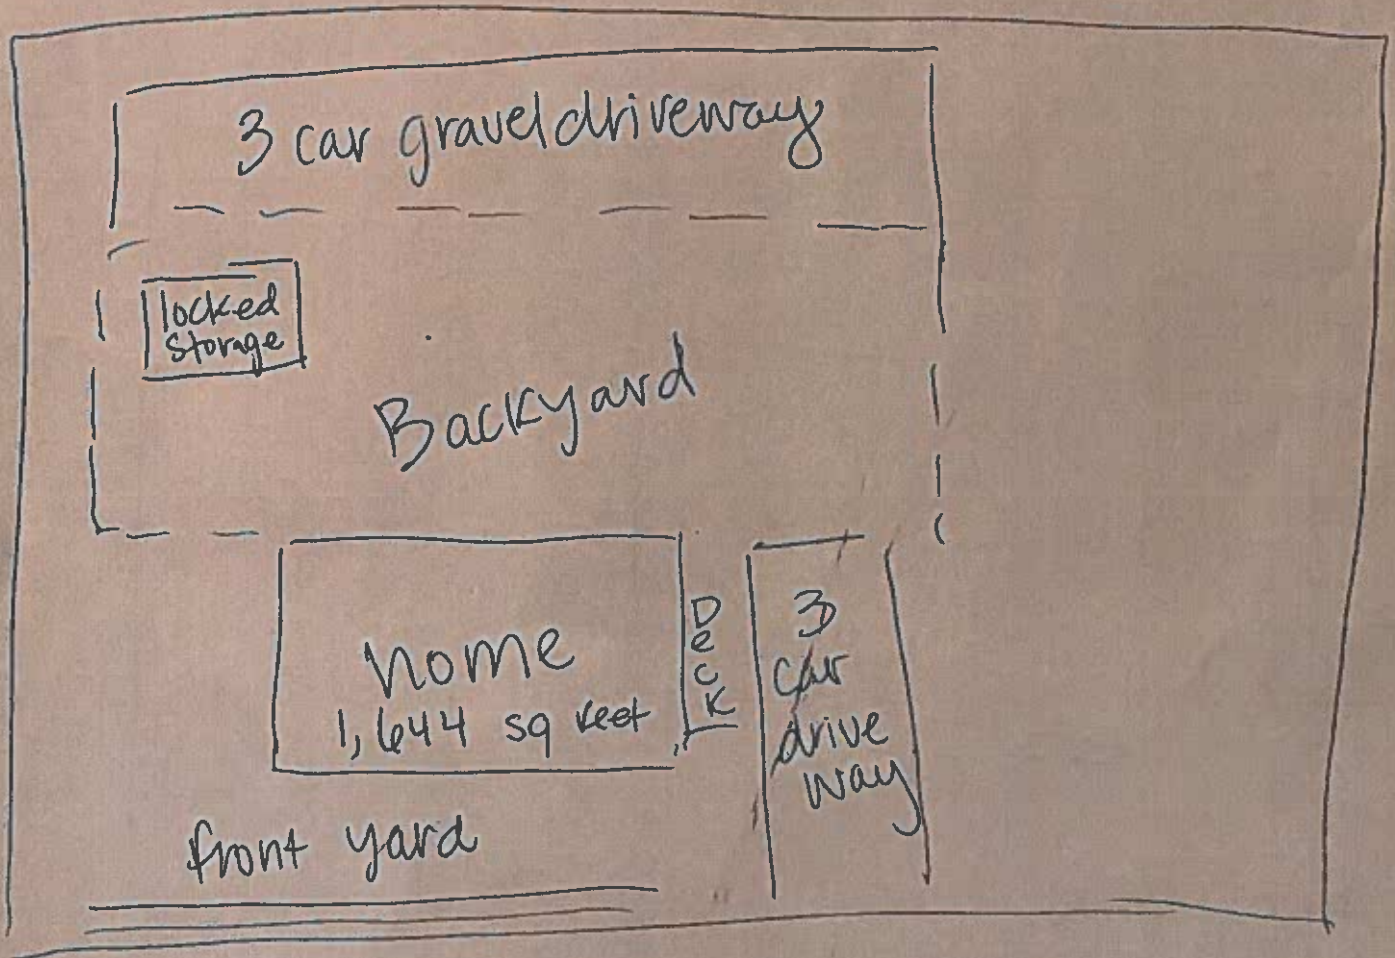 3 car gravel driveway
locked
storage
Backyard
home
1,644 sq feet
Deck
3
car
drive
way
front yard